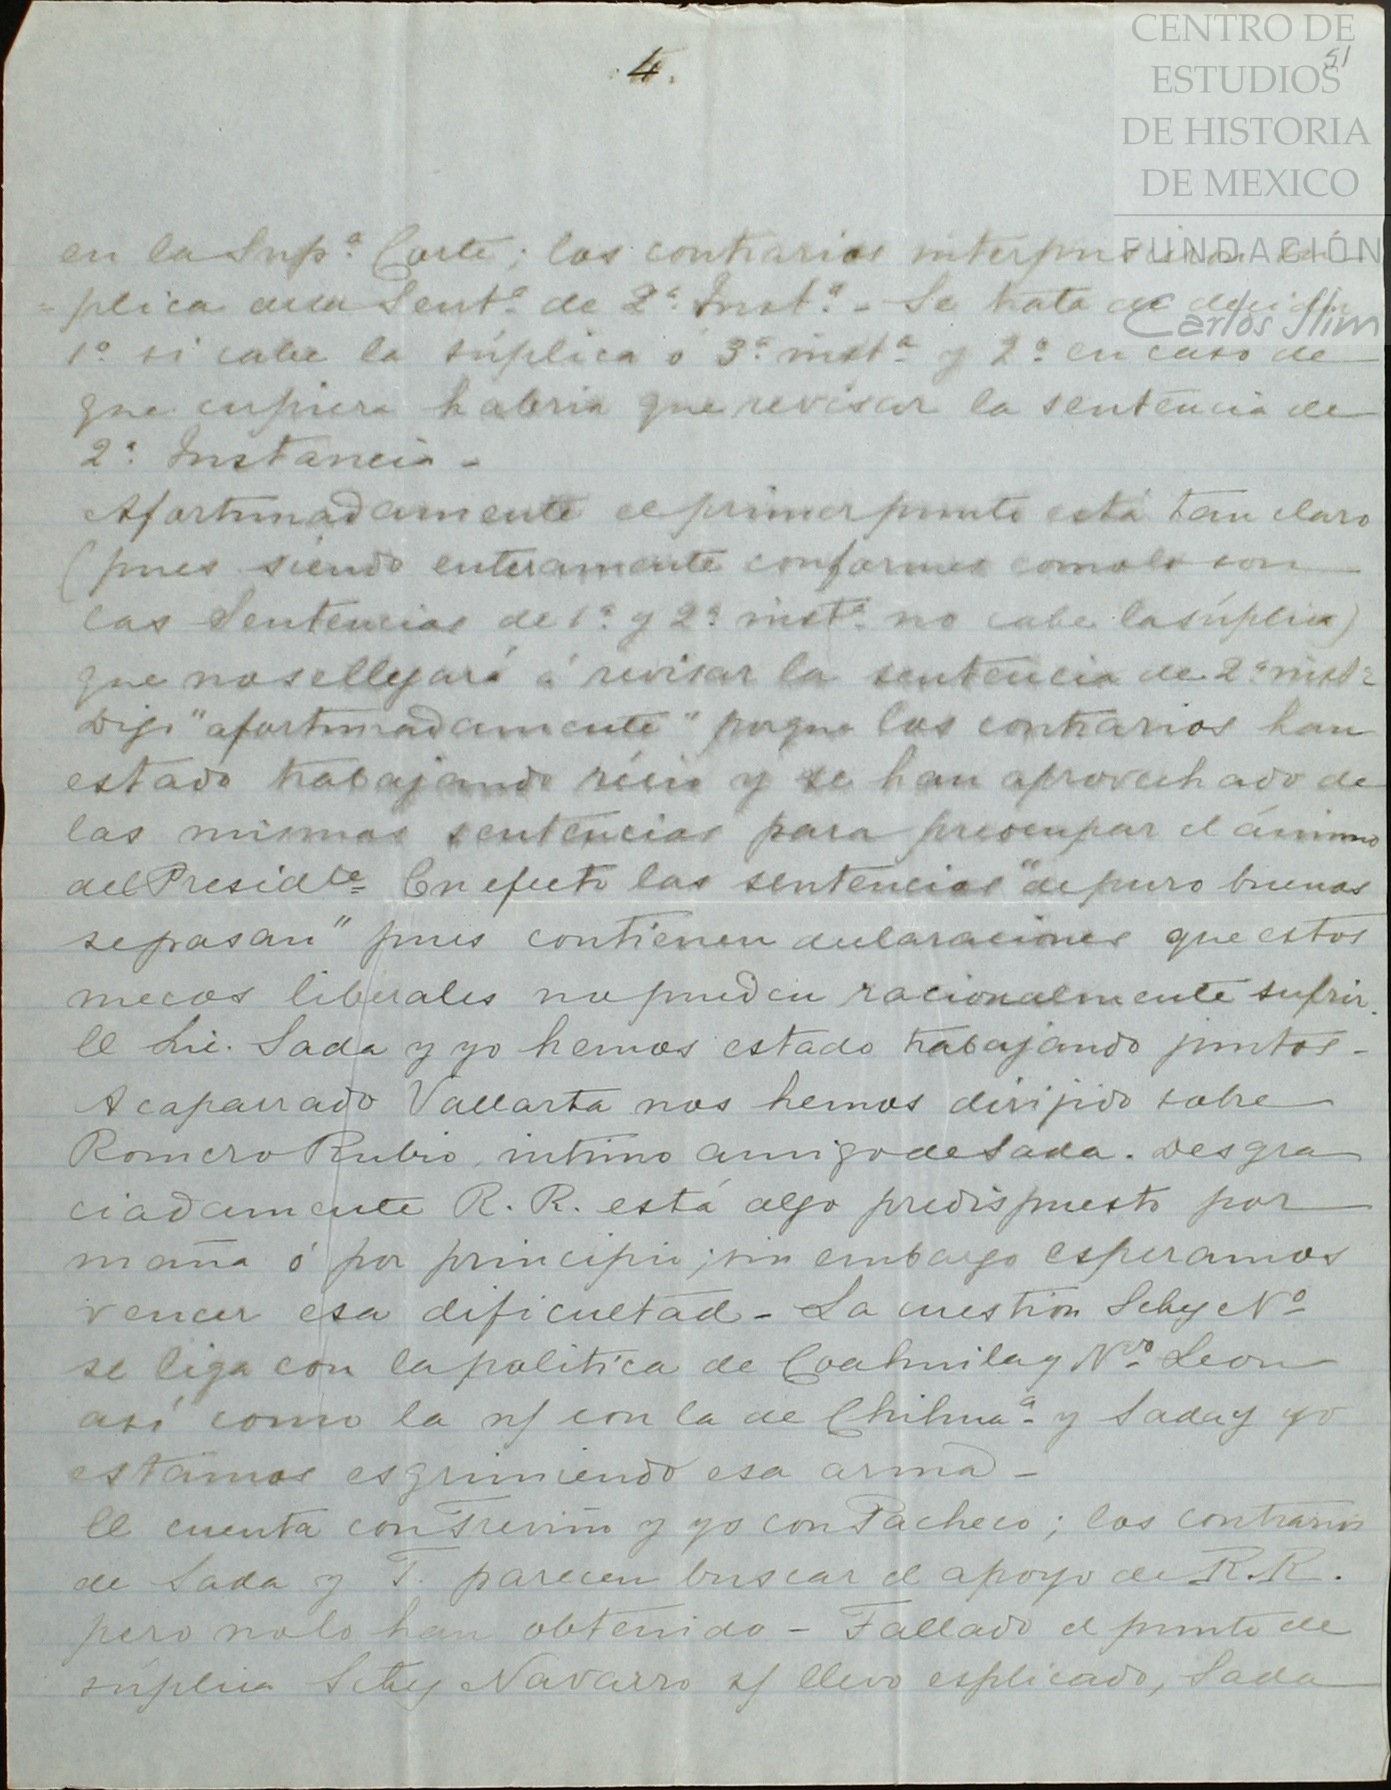 4.
51
CENTRO DE
ESTUDIOS
DE HISTORIA
DE MEXICO
FUNDACIÓN
Carlos Slim
en la Supª Corte; los contrarios interpusieron sú-
=plica de la Sentª de 2ª Instª - Se trata de decidir
1º si cabe la súplica ó 3ª instª y 2º en caso de
que cupiera habria que revisar la sentencia de
2ª Instancia -
Afortunadamente el primer punto está tan claro
(pues siendo enteramente conformes como lo son
las Sentencias de 1ª y 2ª instª no cabe la súplica)
que no se llegará á revisar la sentencia de 2ª instª
Dije "afortunadamente" porque los contrarios han
estado trabajando récio y se han aprovechado de
las mismas sentencias para preocupar el ánimo
del Presidte En efecto las sentencias "de puro buenas
se pasan" pues contienen declaraciones que estos
mecos liberales no pueden racionalmente sufrir.
El Lic. Sada y yo hemos estado trabajando juntos -
Acaparrado Vallarta nos hemos dirijido sobre
Romero Rubio, intimo amigo de Sada. Desgra
ciadamente R. R. está algo predispuesto por
maña ó por principio; sin embargo esperamos
vencer esa dificultad - La cuestion Setey Nº
se liga con la politica de Coahuila y Nvo Leon
así como la n/ con la de Chihuaª y Sada y yo
estamos esgrimiendo esa arma -
El cuenta con Treviño y yo con Pacheco; los contrarios
de Sada y T. parecen buscar el apoyo de R. R.
pero no lo han obtenido - Fallado el punto de
súplica Setey Navarro s/ llevo esplicado, Sada